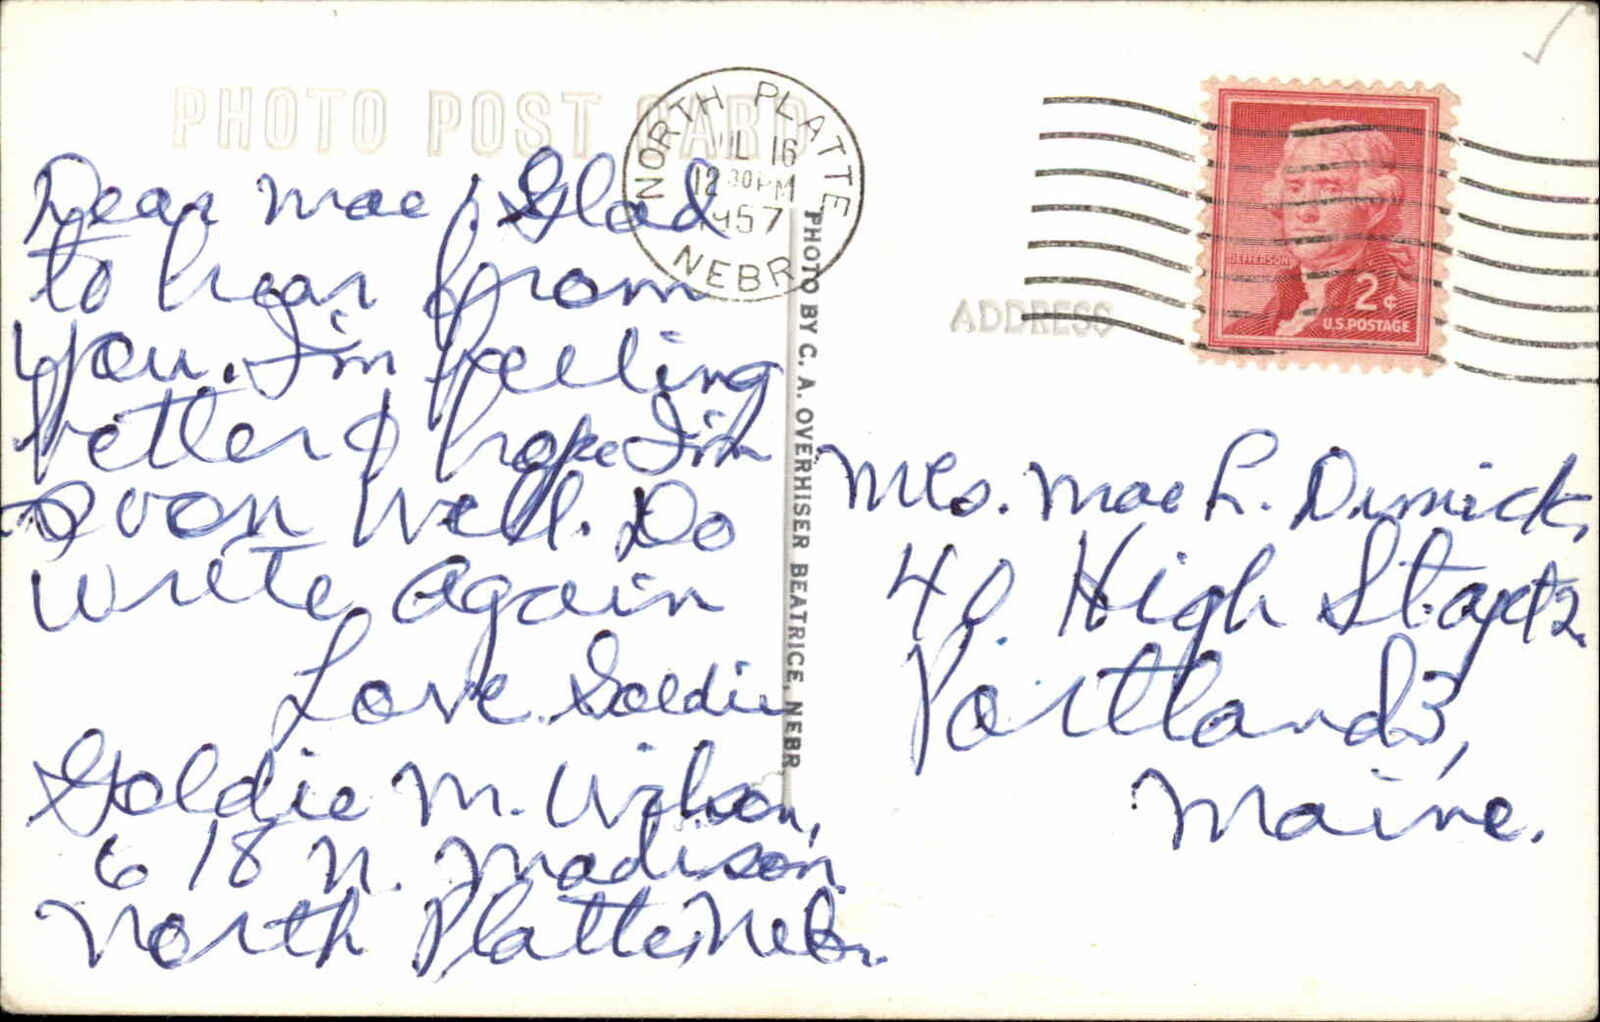 PHOTO POST CARD
Dear Mae, Glad
to hear from
you. I'm feeling
better & hope I'm
soon well. Do
write again
Love Goldie
Goldie M. Wilson,
618 N. Madison
North Platte, Nebr.
NORTH PLATTE
JUL 16
12 30 PM
1957
NEBR
PHOTO BY C. A. OVERHISER BEATRICE, NEBR.
ADDRESS
JEFFERSON
2¢
U.S. POSTAGE
Mrs. Mae L. Dimick,
40 High St. apt 2.
Portland 3,
Maine.